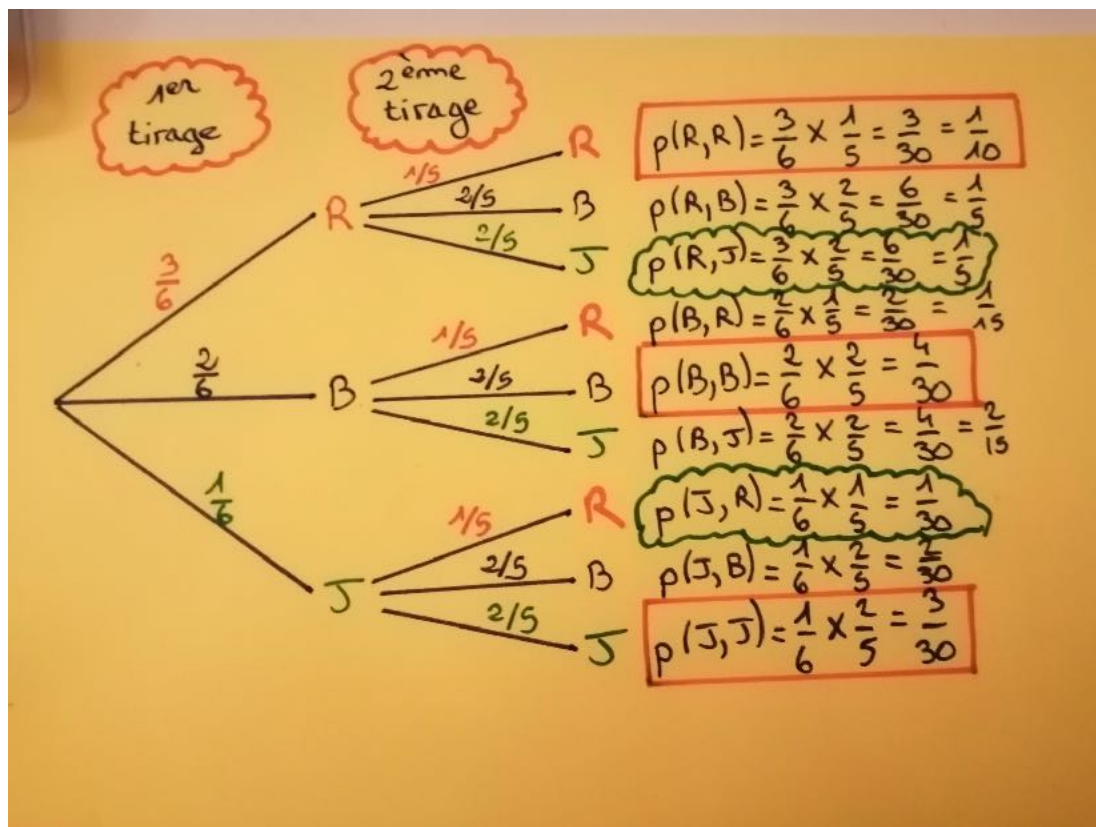 1er
tirage
2ème
tirage
3/6
2/6
1/6
R
B
J
1/5
2/5
2/5
R
B
J
1/5
2/5
2/5
R
B
J
1/5
2/5
2/5
R
B
J
p(R,R) = 3/6 × 1/5 = 3/30 = 1/10
p(R,B) = 3/6 × 2/5 = 6/30 = 1/5
p(R,J) = 3/6 × 2/5 = 6/30 = 1/5
p(B,R) = 2/6 × 1/5 = 2/30 = 1/15
p(B,B) = 2/6 × 2/5 = 4/30
p(B,J) = 2/6 × 2/5 = 4/30 = 2/15
p(J,R) = 1/6 × 1/5 = 1/30
p(J,B) = 1/6 × 2/5 = 2/30
p(J,J) = 1/6 × 2/5 = 3/30